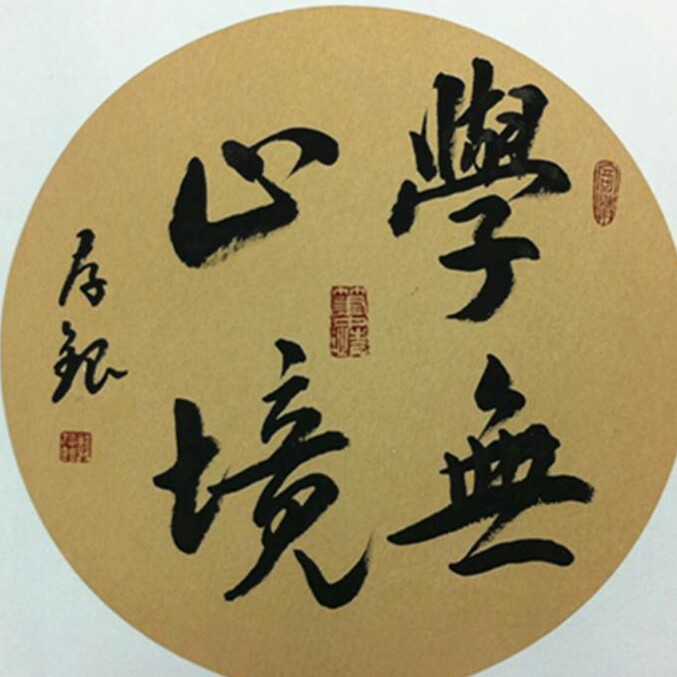 學無
止境
存銀